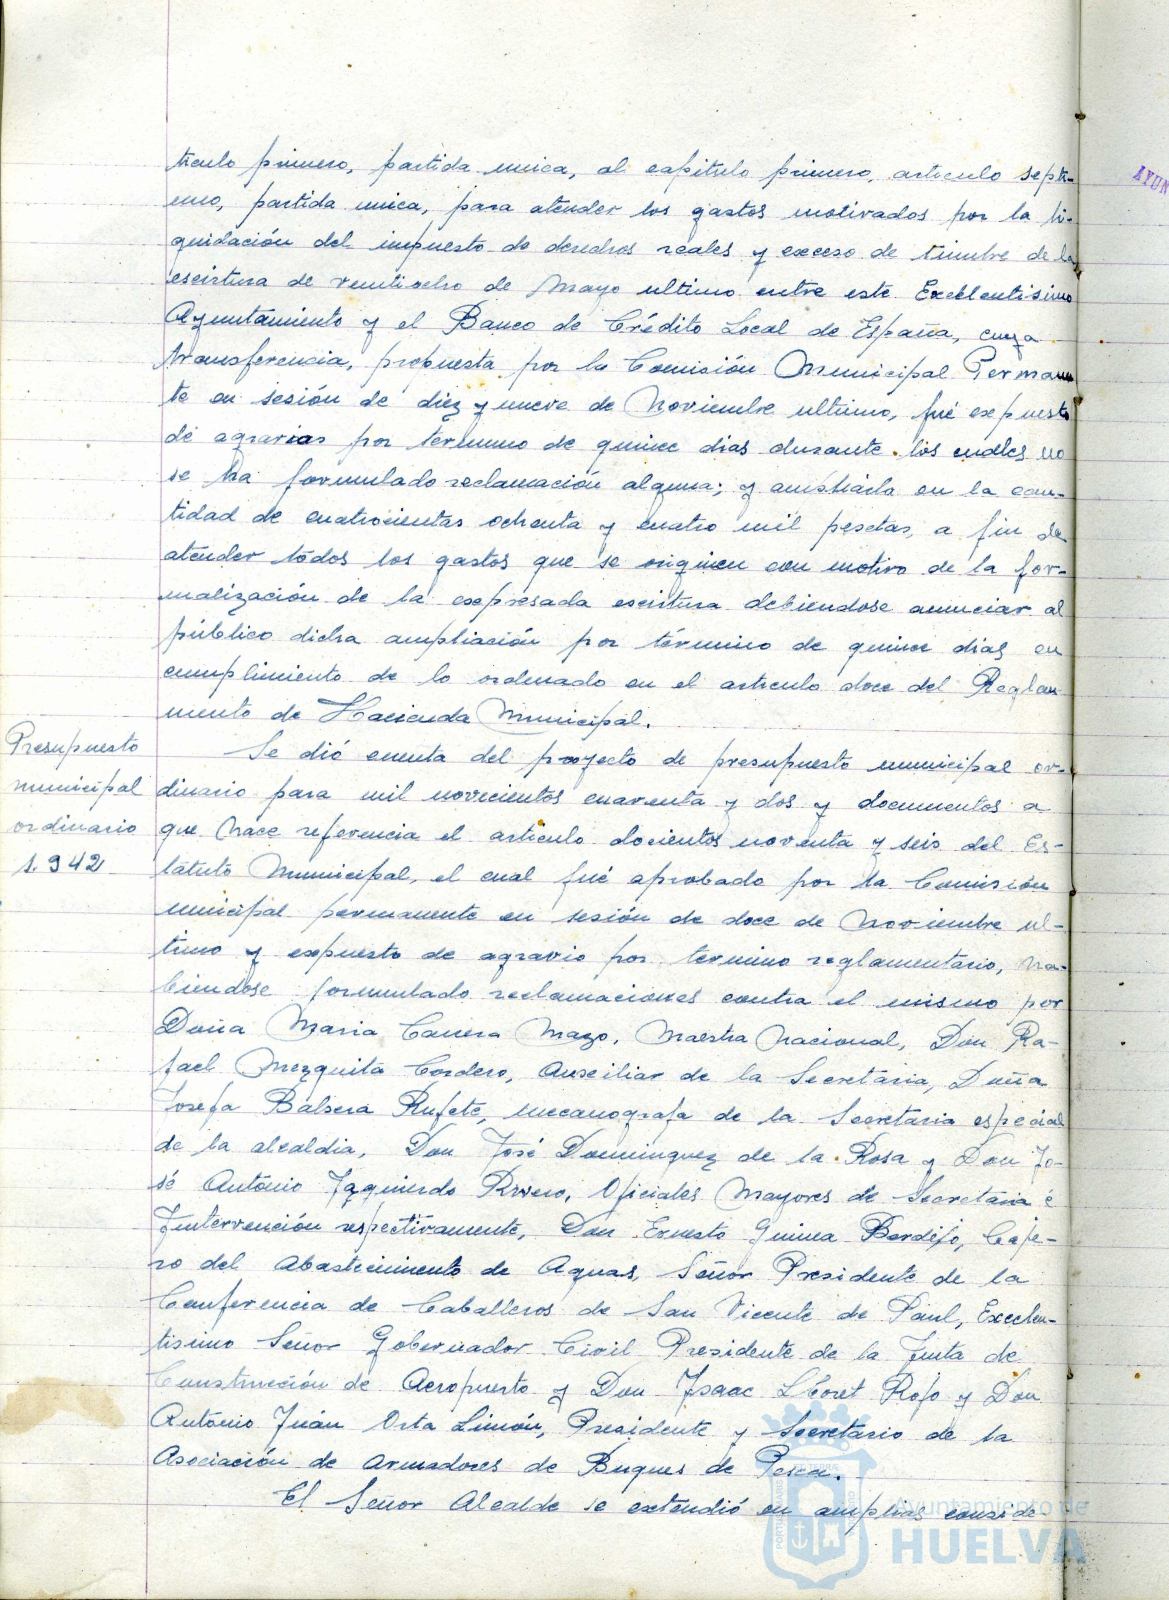 ticulo primero, partida unica, al capitulo primero, articulo septi-
mo, partida unica, para atender los gastos motivados por la li-
quidación del impuesto de derechos reales y exceso de timbre de la
escritura de ventiocho de Mayo ultimo entre este Excelentisimo
Ayuntamiento y el Banco de Crédito Local de España, cuya
transferencia, propuesta por la Comisión Municipal Permanen
te en sesión de diez y nueve de Noviembre ultimo, fué expuesto
de agravias por termino de quince dias durante los cuales no
se ha formulado reclamación alguna; y ampliarla en la can-
tidad de cuatrocientas ochenta y cuatro mil pesetas, a fin de
atender todos los gastos que se originen con motivo de la for-
malización de la expresada escritura debiendose anunciar al
público dicha ampliación por término de quince dias en
cumplimiento de lo ordenado en el articulo doce del Regla-
mento de Hacienda Municipal.
Presupuesto
municipal
ordinario
1.942
Se dió cuenta del proyecto de presupuesto municipal or-
dinario para mil novecientos cuarenta y dos y documentos a
que hace referencia el articulo docientos noventa y seis del Es-
tatuto Municipal, el cual fué aprobado por la Comisión
municipal permanente en sesión de doce de Noviembre ul-
timo y expuesto de agravio por termino reglamentario, ha-
biendose formulado reclamaciones contra el mismo por
Doña Maria Mazo, Maestra Nacional, Don Ra-
fael Mezquita Cordero, Auxiliar de la Secretaria, Doña
Josefa Balsera Rufete, mecanografa de la Secretaria especial
de la alcaldia, Don José Dominguez de la Rosa y Don Jo-
sé Antonio Izquierdo Rivero, Oficiales Mayores de Secretaria e
Intervención respectivamente, Don Ernesto Guinea Berdejo, Caje-
ro del Abastecimiento de Aguas, Señor Presidente de la
Conferencia de Caballeros de San Vicente de Paul, Excelen-
tisimo Señor Gobernador Civil Presidente de la Junta de
Construcción de Aeropuerto y Don Isaac Lloret Rojo y Don
Antonio Juán Orta Limón, Presidente y Secretario de la
Asociación de Armadores de Buques de Pesca.
El Señor Alcalde se extendió en amplias conside-
AYUN
Ayuntamiento de
HUELVA